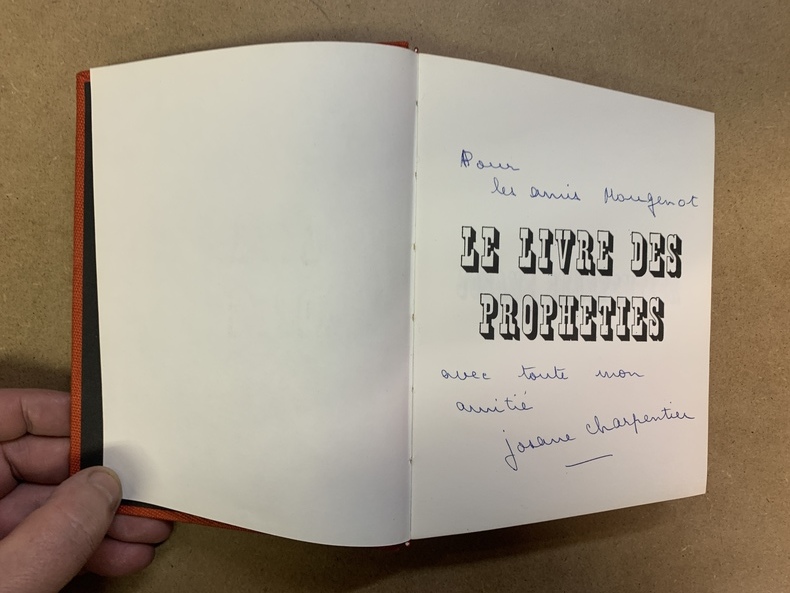 Pour
les amis Mougenot
LE LIVRE DES
PROPHETIES
avec toute mon
amitié
josane charpentier